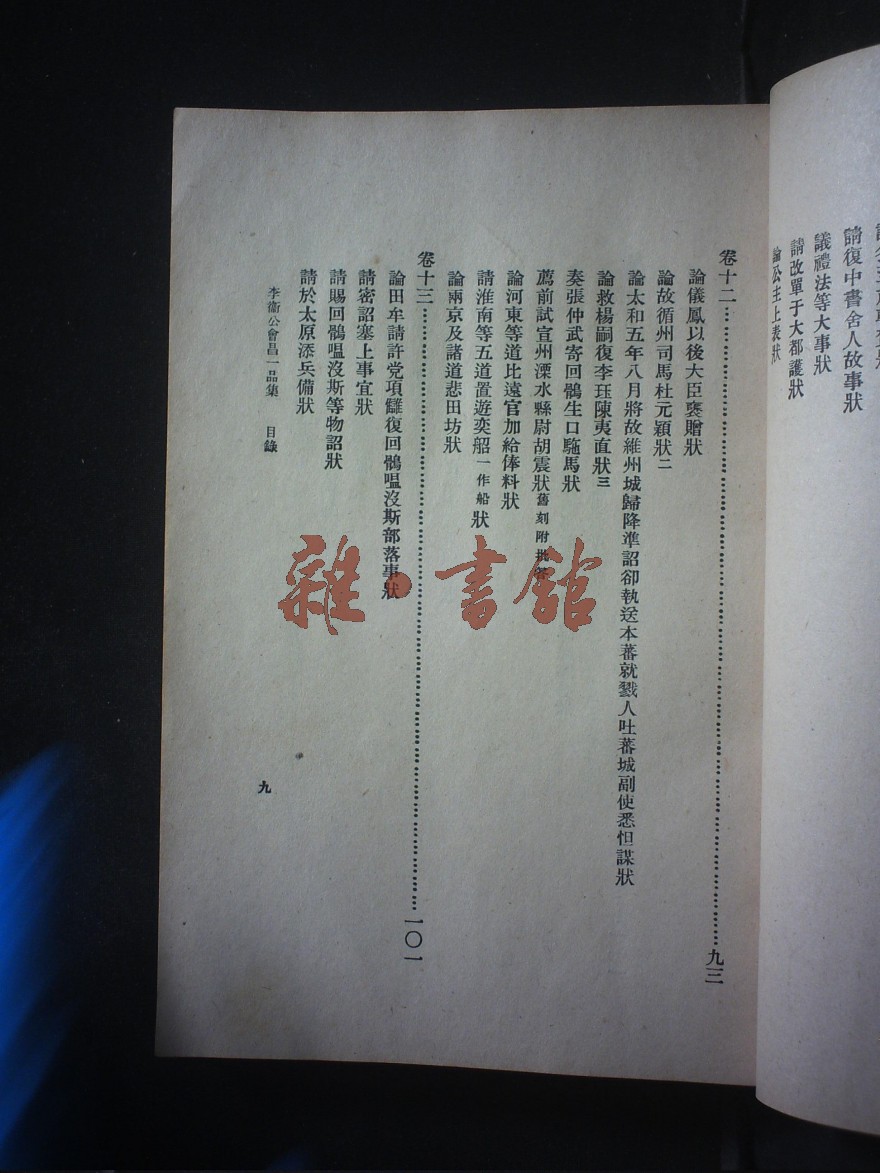 請復中書舍人故事狀
議禮法等大事狀
請改單于大都護狀
論公主上表狀
卷十二……九三
論儀鳳以後大臣褒贈狀
論故循州司馬杜元穎狀二
論太和五年八月將故維州城歸降準詔卻執送本蕃就戮人吐蕃城副使悉怛謀狀
論救楊嗣復李珏陳夷直狀三
奏張仲武寄回鶻生口駞馬狀
薦前試宣州溧水縣尉胡震狀舊刻附批答
論河東等道比遠官加給俸料狀
請淮南等五道置遊奕船一作船狀
論兩京及諸道悲田坊狀
卷十三……一〇一
論田牟請許党項讎復回鶻嗢沒斯部落事狀
請密詔塞上事宜狀
請賜回鶻嗢沒斯等物詔狀
請於太原添兵備狀
李衞公會昌一品集 目錄
九
雜·書館